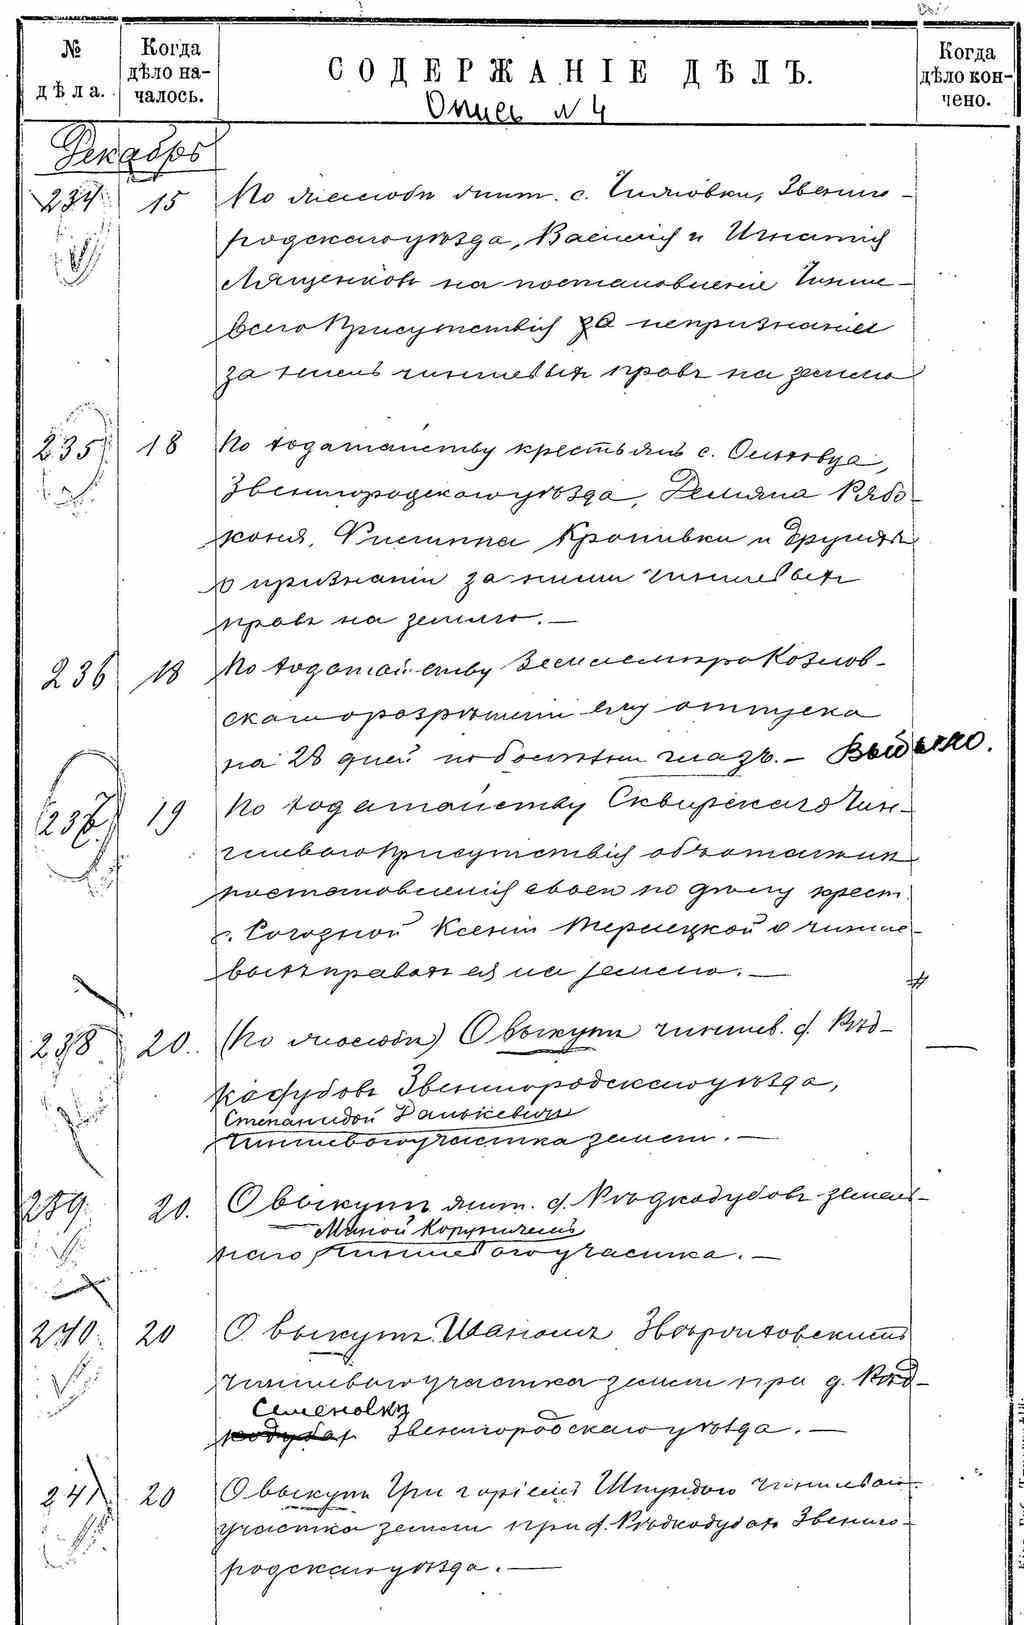 № дѣла.
Когда дѣло началось.
СОДЕРЖАНІЕ ДѢЛЪ.
Когда дѣло кончено.
Опись N 4
Декабрь
234 15 По жалобѣ жит. с. Звениго-
родскаго уѣзда, Василія и Игнатія
Лященковъ на постановленіе Чинше-
ваго Присутствія за непризнаніе
за ними чиншевыхъ правъ на землю
235 18 По ходатайству крестьянъ с. Ольховца,
Звенигородскаго уѣзда, Демьяна Рябо-
коня, Филиппа Кропивки и другихъ
о признаніи за ними чиншевыхъ
правъ на землю.—
236 18 По ходатайству Землемѣра Козлов-
скаго о разрѣшеніи ему отпуска
на 28 дней по болѣзни глазъ.— Выбыло.
237 19 По ходатайству Сквирскаго Чин-
шеваго Присутствія объ отмѣнѣ
постановленія своего по дѣлу крест.
с. Ксеніи Тернецкой о чинше-
выхъ правахъ ея на землю.—
238 20. (По жалобѣ) О выкупѣ чиншев. д. Рѣд-
кодубовъ Звенигородскаго уѣзда,
Степанидой Данькевичъ
чиншеваго участка земли.—
239 20. О выкупѣ жит. д. Рѣдкодубовъ земель-
Миной Корупчемъ
наго чиншеваго участка.—
240 20 О выкупѣ Иваномъ
чиншеваго участка земли при д. Рѣд-
Семеновку
кодубахъ Звенигородскаго уѣзда.—
241 20 О выкупѣ Григоріемъ чиншеваго
участка земли при д. Рѣдкодубахъ Звениго-
родскаго уѣзда.—